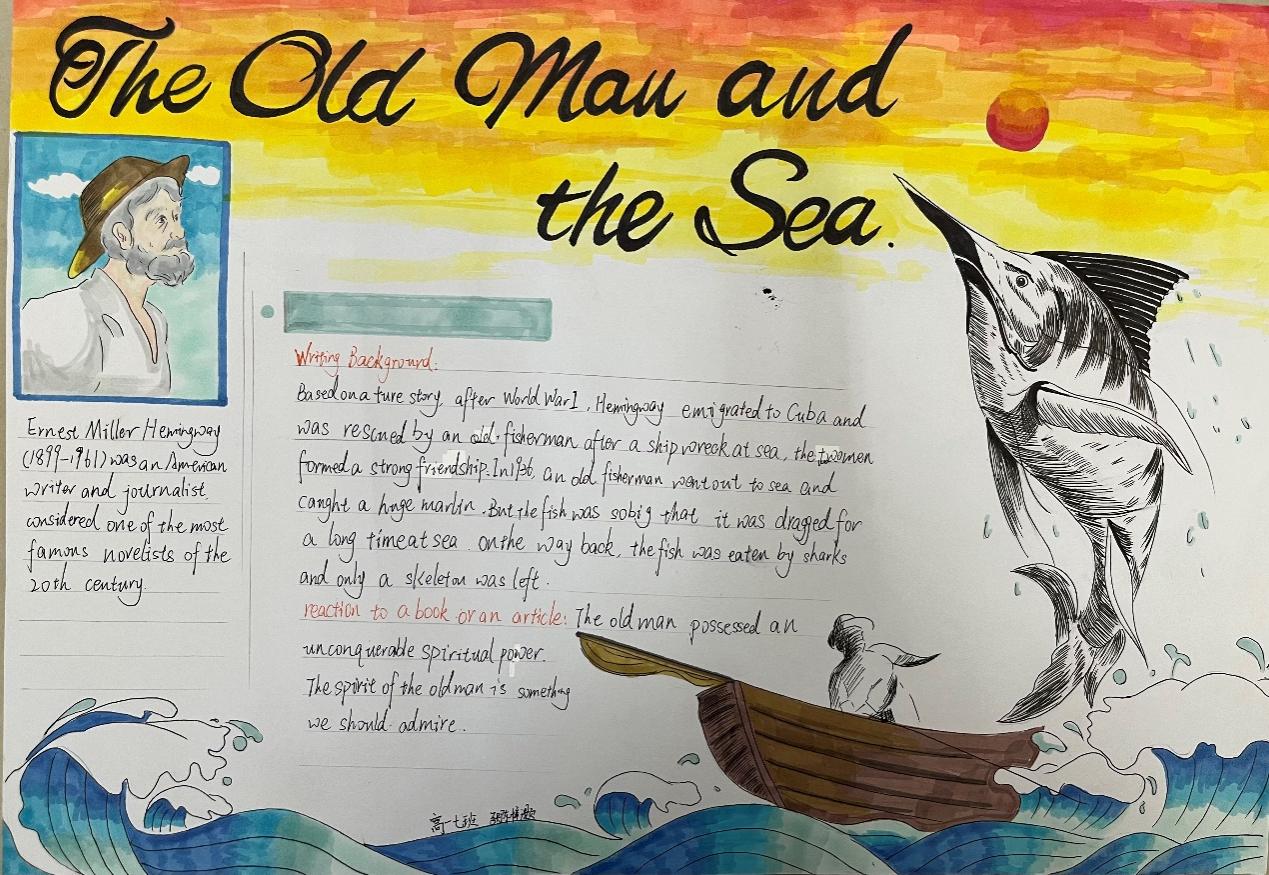 The Old Man and
the Sea.
Ernest Miller Hemingway
(1899-1961) was an American
writer and journalist,
considered one of the most
famous novelists of the
20th century.
Writing Background:
Based on a ture story, after World War I, Hemingway emigrated to Cuba and
was rescued by an old fisherman after a shipwreck at sea, the two men
formed a strong friendship. In 1936, an old fisherman went out to sea and
caught a huge marlin. But the fish was so big that it was dragged for
a long time at sea. On the way back, the fish was eaten by sharks
and only a skeleton was left.
reaction to a book or an article: The old man possessed an
unconquerable spiritual power.
The spirit of the old man is something
we should admire.
高一七班